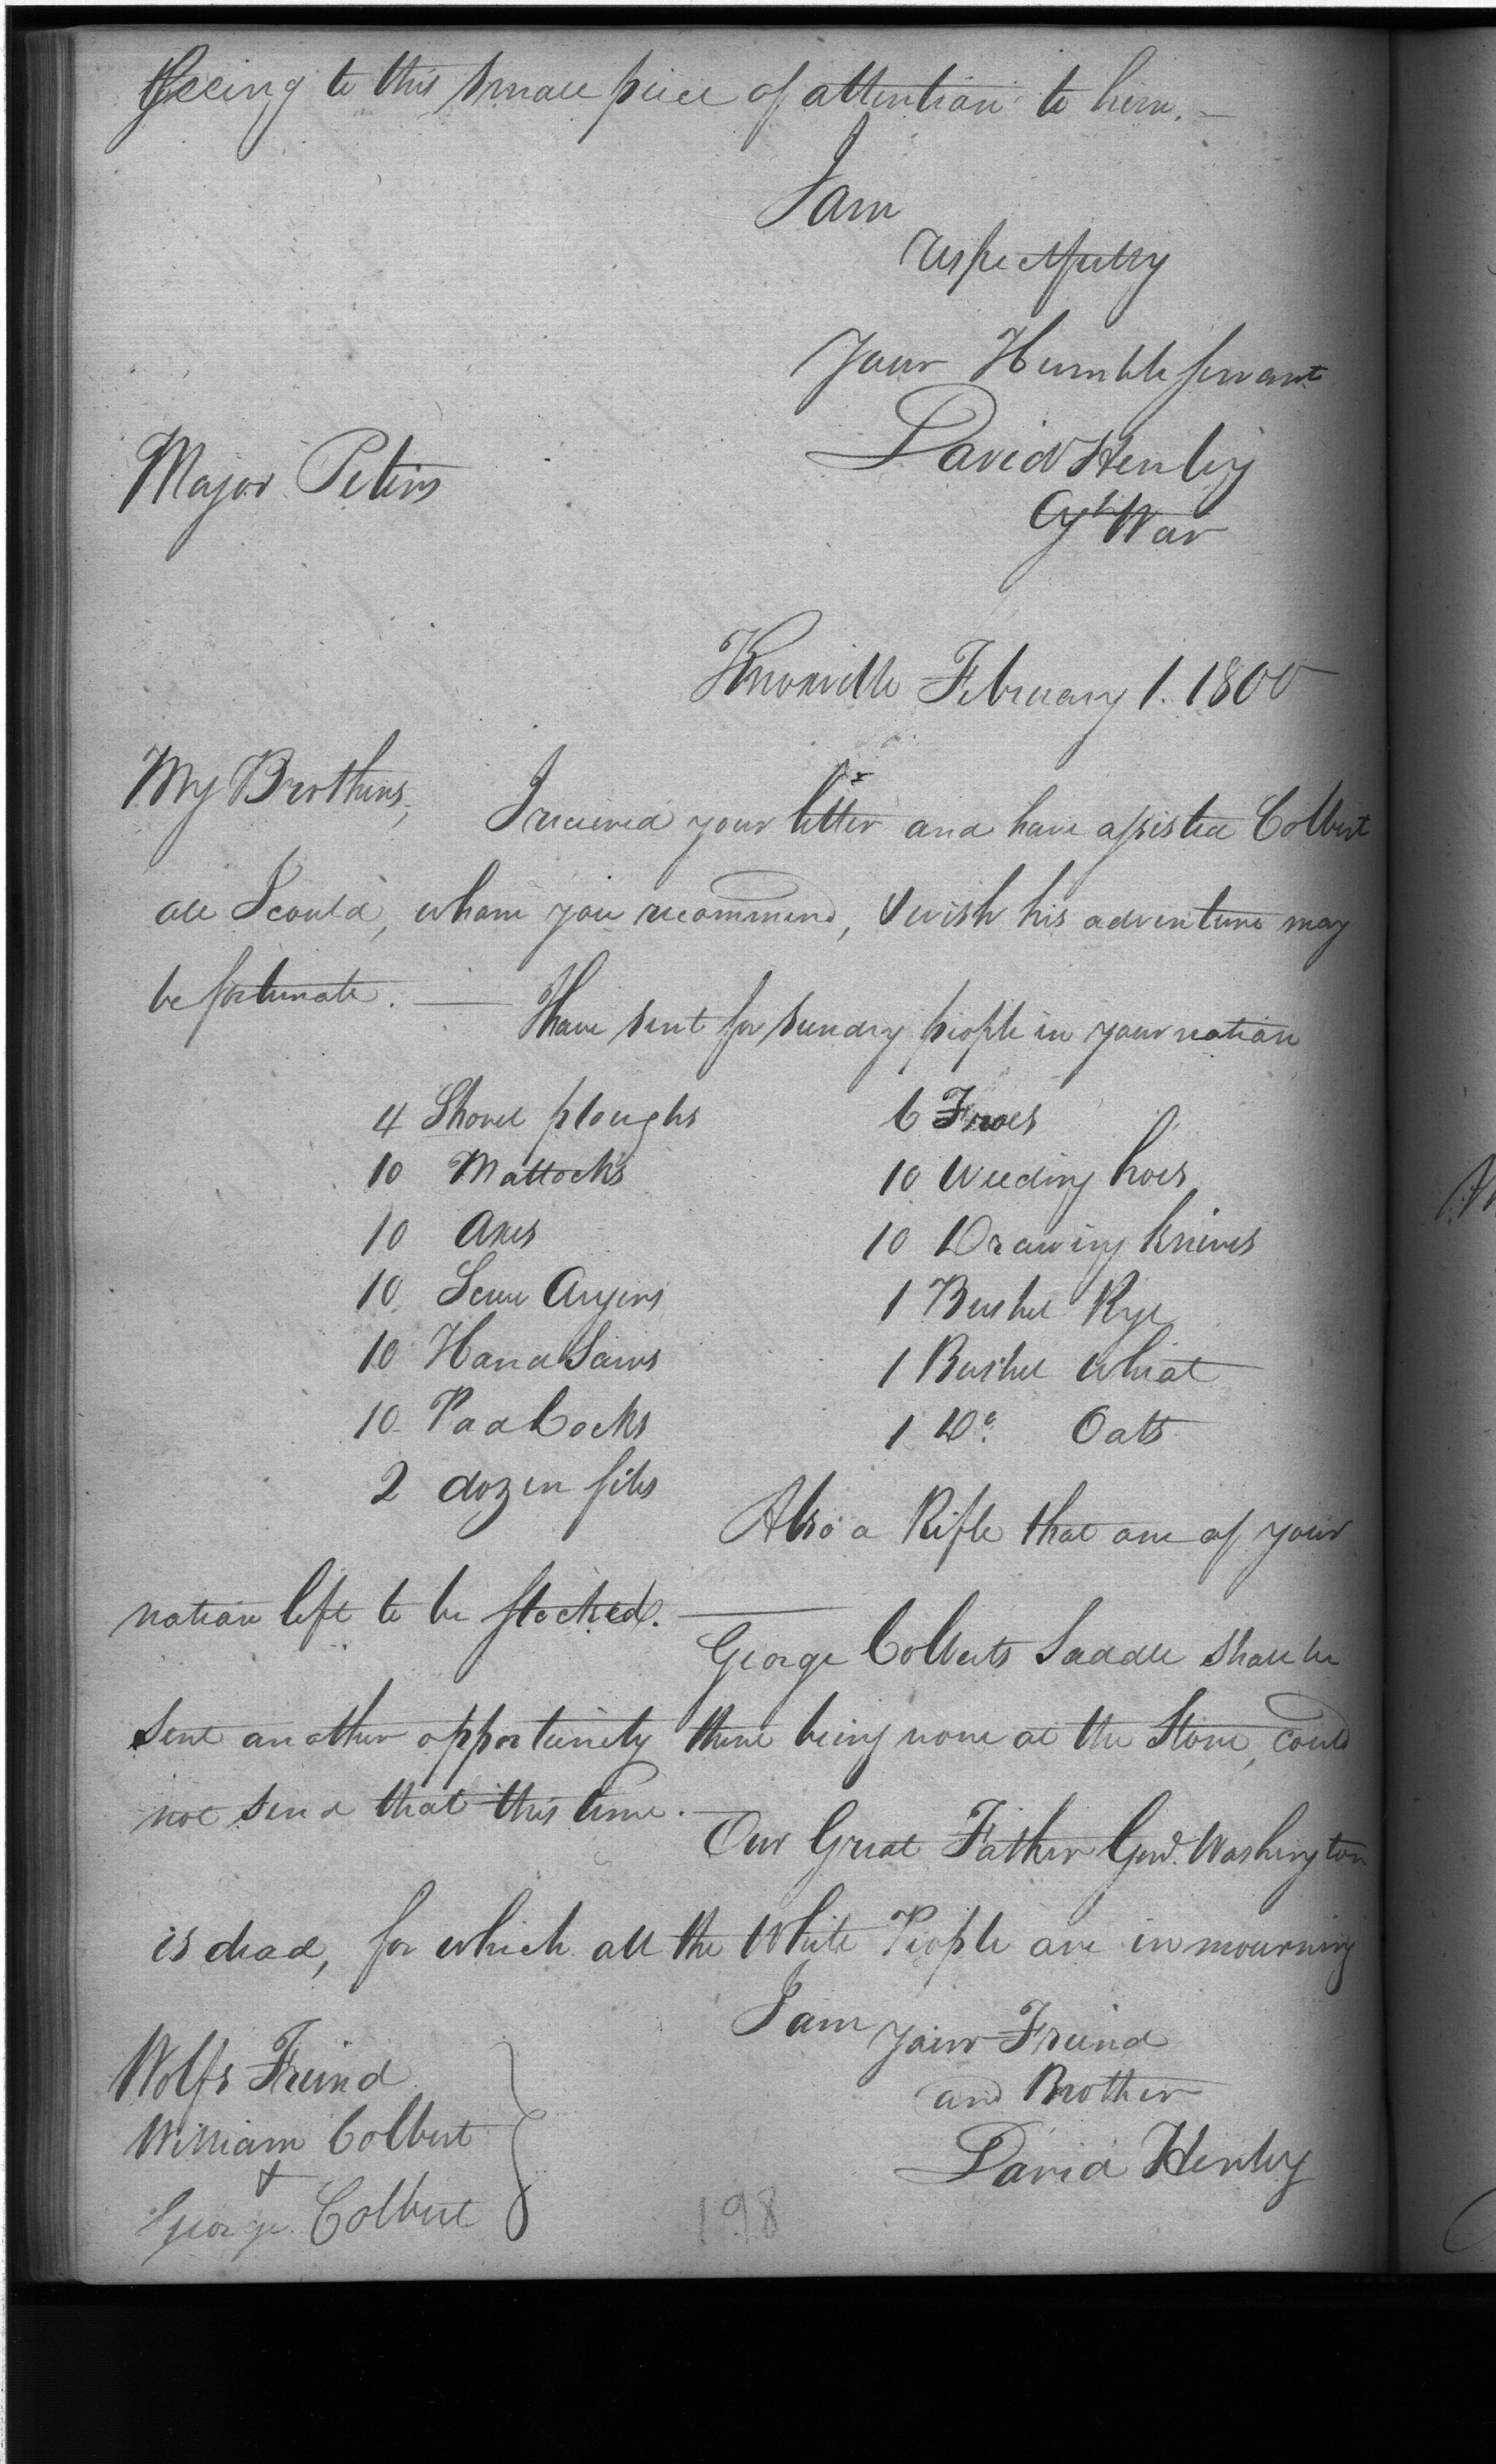 seeing to this small piece of attention to him. —
I am
respectfully
Your Humble servant
David Henley
Agt War
Major Peters
Knoxville February 1. 1800
My Brothers,
I received your letter and have assisted Colbert
all I could, whom you recommend, & wish his adventure may
be fortunate. —
I have sent for sundry people in your nation
4 Shovel ploughs
10 Mattocks
10 Axes
10 Screw Augers
10 Hand Saws
10 Pad Locks
2 dozen files
6 Froes
10 Weeding hoes
10 Drawing Knives
1 Bushel Rye
1 Bushel Wheat
1 Do. Oats
Also a Rifle that one of your
nation left to be stocked. —
George Colberts Saddle shall be
sent another opportunity there being none at the Store, could
not send that this time. —
Our Great Father Genl. Washington
is dead, for which all the White People are in mourning
I am your Freind
and Brother
David Henley
Wolfs Freind
William Colbert
&
George Colbert
198